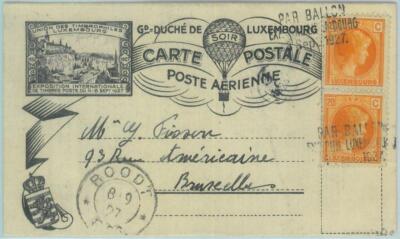 UNION DES TIMBROPHILES
LUXEMBOURG
EXPOSITION INTERNATIONALE
DE TIMBRES POSTE DU 4-8 SEPT 1927
Gd-DUCHÉ DE LUXEMBOURG
SOIR
CARTE POSTALE
POSTE AÉRIENNE
PAR BALLON
1927.
20 C
PAR BALLON
1927.
Mme
93 Rue Américaine
Bruxelles
ROODT
8-9
27